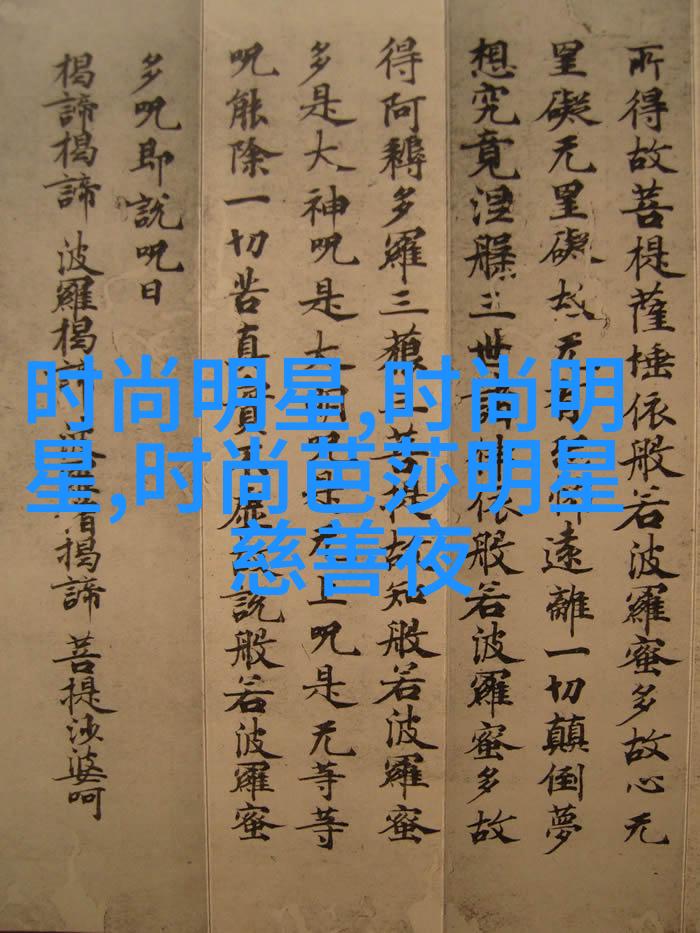 所得故菩提薩埵依般若波羅蜜多故心无
罣礙无罣礙故无有恐怖遠離一切顛倒夢
想究竟涅槃三世諸佛依般若波羅蜜多故
得阿耨多羅三藐三菩提故知般若波羅蜜
多是大神呪是大明呪是无上呪是无等等
呪能除一切苦真實不虛故說般若波羅蜜
多呪即說呪曰
揭諦揭諦 波羅揭諦 波羅僧揭諦 菩提沙婆呵
时尚明星,时尚明
星,时尚芭莎明星
慈善夜